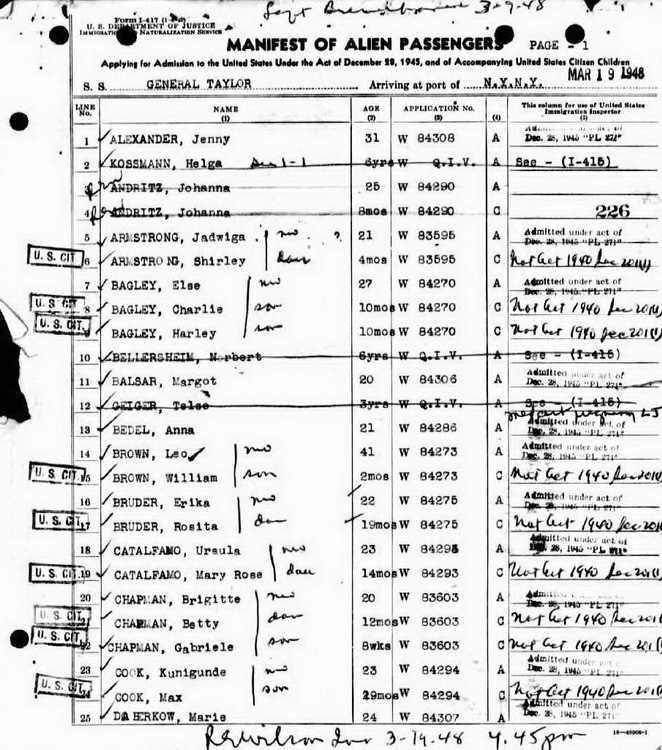 Form I-417
U. S. DEPARTMENT OF JUSTICE
IMMIGRATION AND NATURALIZATION SERVICE
3-9-48
MANIFEST OF ALIEN PASSENGERS PAGE - 1
Applying for Admission to the United States Under the Act of December 28, 1945, and of Accompanying United States Citizen Children
MAR 19 1948
S. S. GENERAL TAYLOR Arriving at port of N.Y.N.Y.
LINE No. NAME (1) AGE (2) APPLICATION No. (3) (4) This column for use of United States Immigration Inspector (5)
1 ALEXANDER, Jenny 31 W 84308 A Dec. 28, 1945 "PL 271"
2 KOSSMANN, Helga 6yrs W Q.I.V. A See - (I-415)
3 ANDRITZ, Johanna 25 W 84290 A
4 ANDRITZ, Johanna 8mos W 84290 C 226
5 ARMSTRONG, Jadwiga mo ? 21 W 83595 A Admitted under act of Dec. 28, 1945 "PL 271"
U. S. CIT. 6 ARMSTRONG, Shirley dau 4mos W 83595 C Not Act 1940 Sec 201(1)
7 BAGLEY, Else mo 27 W 84270 A Admitted under act of Dec. 28, 1945 "PL 271"
U. S. CIT. 8 BAGLEY, Charlie son 10mos W 84270 C Not Act 1940 Sec 201(1)
U. S. CIT. 9 BAGLEY, Harley son 10mos W 84270 C Not Act 1940 Sec 201(1)
10 BELLERSHEIM, Norbert 6yrs W Q.I.V. A See - (I-415)
11 BALSAR, Margot 20 W 84306 A Admitted under act of Dec. 28, 1945 "PL 271"
12 GEIGER, Telse 3yrs W Q.I.V. A See - (I-415)
13 BEDEL, Anna 21 W 84286 A Admitted under act of Dec. 28, 1945 "PL 271"
14 BROWN, Leo mo 41 W 84273 A Admitted under act of Dec. 28, 1945 "PL 271"
U. S. CIT. 15 BROWN, William son 2mos W 84273 C Not Act 1940 Sec 201(1)
16 BRUDER, Erika mo 22 W 84275 A Admitted under act of Dec. 28, 1945 "PL 271"
U. S. CIT. 17 BRUDER, Rosita dau 19mos W 84275 C Not Act 1940 Sec 201(1)
18 CATALFAMO, Ursula mo 23 W 84293 A Admitted under act of Dec. 28, 1945 "PL 271"
U. S. CIT. 19 CATALFAMO, Mary Rose dau 14mos W 84293 C Not Act 1940 Sec 201(1)
20 CHAPMAN, Brigitte mo 20 W 83603 A Admitted under act of Dec. 28, 1945 "PL 271"
U. S. CIT. 21 CHAPMAN, Betty dau 12mos W 83603 C Not Act 1940 Sec 201(1)
U. S. CIT. 22 CHAPMAN, Gabriele son 8wks W 83603 C Not Act 1940 Sec 201(1)
23 COOK, Kunigunde mo 23 W 84294 A Admitted under act of Dec. 28, 1945 "PL 271"
U. S. CIT. 24 COOK, Max son 29mos W 84294 C Not Act 1940 Sec 201(1)
25 DAHERKOW, Marie 24 W 84307 A Admitted under act of Dec. 28, 1945 "PL 271"
3-19-48 4.45pm